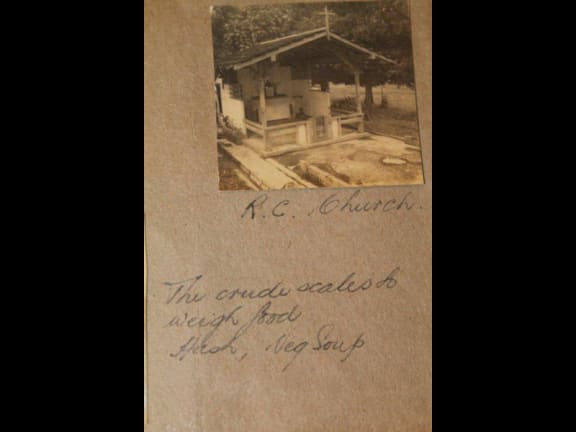 R.C. Church.
The crude scales to
weigh food
Hash, Veg Soup